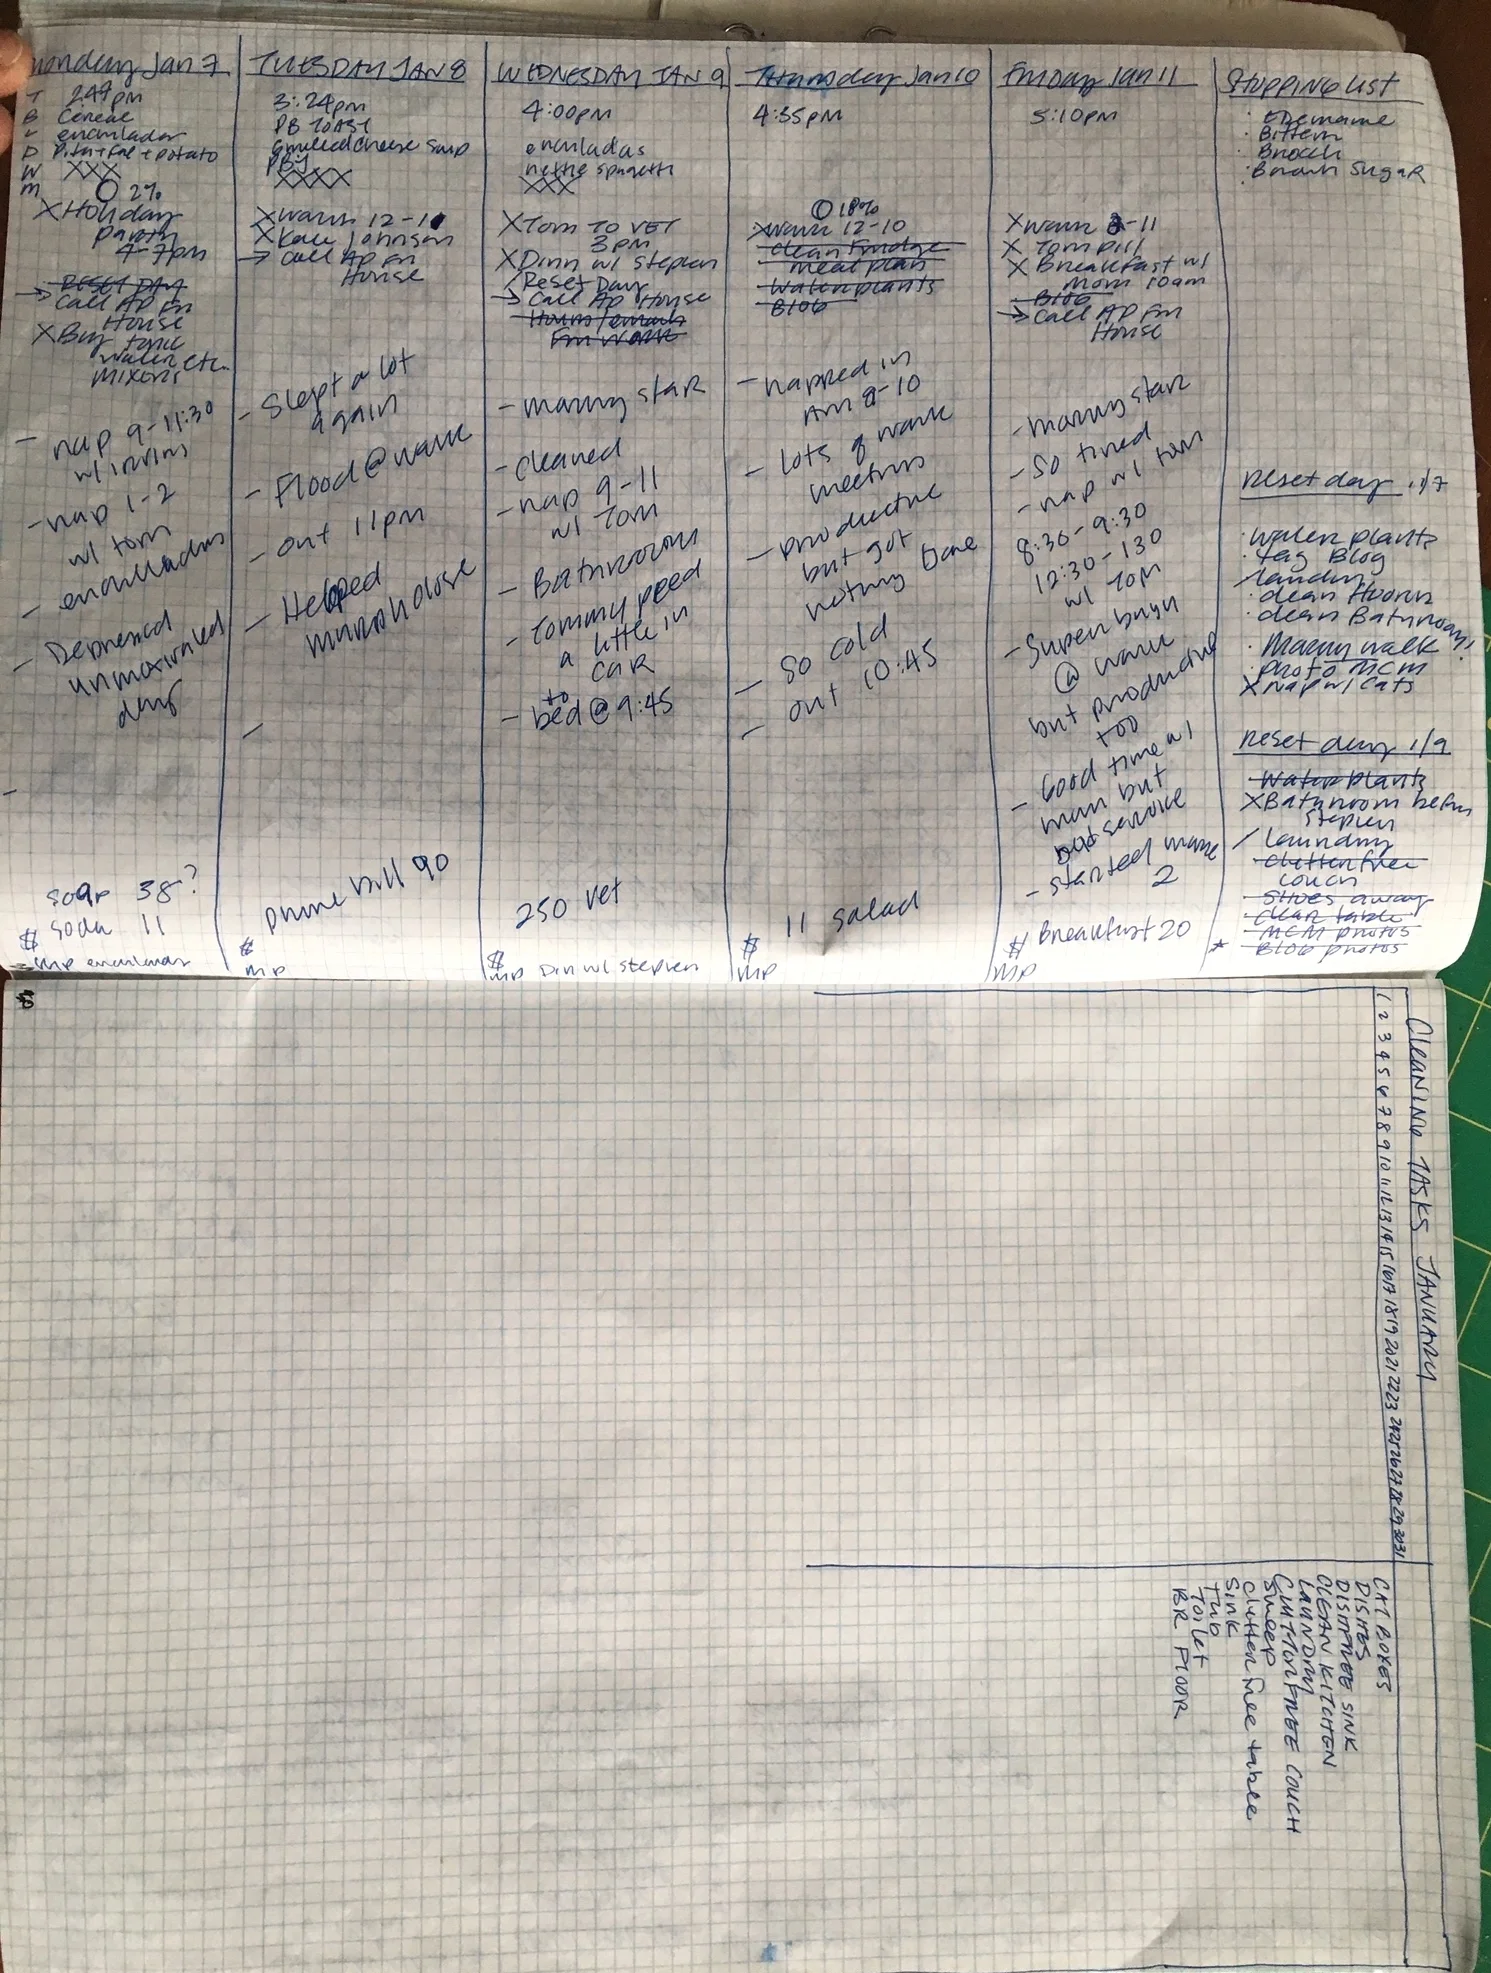 Monday Jan 7
T 2:49pm
B Cereal
L enchiladas
D Pita + fal + potato
W XXX
M
O 2%
X Holiday
Party
4-7pm
RESET DAY
→ Call AP Fm
House
X Buy tonic
water etc.
mixers
- nap 9-11:30
w/
- nap 1-2
w/ tom
- enchiladas
- Depressed
unmotivated
day
-
soap 38?
soda 11
$
MP enchiladas
TUESDAY JAN 8
3:24pm
PB TOAST
Grilled cheese soup
PBJ
XXXX
X Work 12-10
X Johnson
→ Call AP Fm
House
- Slept a lot
again
- Flood @ work
- out 11pm
- Helped
close
-
phone bill 90
$
MP
WEDNESDAY JAN 9
4:00pm
enchiladas
nettie spagetti
XXX
X Tom TO VET
3pm
X Dinn w/ Stephen
/ Reset Day
→ Call AP House
Fm work
- Marny star
- cleaned
- nap 9-11
w/ Tom
- Bathrooms
- Tommy peed
a little in
car
- to bed @ 9:45
250 vet
$
MP Din w/ stephen
Thursday Jan 10
4:35pm
O 18%
X Work 12-10
clean Fridge
meal plan
Water plants
BLOG
- napped in
Am 8-10
- lots of work
meetings
- productive
but got
nothing Done
- so cold
- out 10:45
11 salad
$
MP
Friday Jan 11
5:10pm
X Work 3-11
X Tom pill
X Breakfast w/
Mom 10am
BLOG
→ Call AP Fm
House
- Marny star
- so tired
- nap w/ tom
8:30-9:30
12:30-130
w/ Tom
- Super busy
@ work
but productive
too
- Good time w/
mom but
bad service
- started
2
$ Breakfast 20
MP
Shopping List
· Edemame
· Bittern
· Brocch
· Brown Sugar
Reset day 1/7
· water plants
· tag Blog
/ laundry
· clean floors
· clean Bathroom!
· Marny walk
· photo MCM
X Nap w/ Cats
Reset day 1/9
Water plants
X Bathroom before
Stephen
/ laundry
clutter free
couch
Shoes away
clear table
MCM photos
* BLOG photos
CLEANING TASKS JANUARY
1 2 3 4 5 6 7 8 9 10 11 12 13 14 15 16 17 18 19 20 21 22 23 24 25 26 27 28 29 30 31
CAT BOXES
DISHES
DISH FREE SINK
CLEAN KITCHEN
LAUNDRY
CLUTTER FREE COUCH
Sweep
Clutter free table
SINK
TUB
Toilet
BR FLOOR